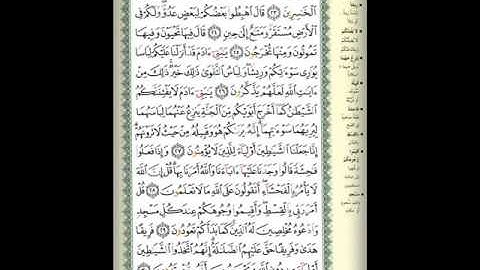 ٱلْخَٰسِرِينَ قَالَ ٱهْبِطُوا۟ بَعْضُكُمْ لِبَعْضٍ عَدُوٌّ وَلَكُمْ فِى
ٱلْأَرْضِ مُسْتَقَرٌّ وَمَتَٰعٌ إِلَىٰ حِينٍ قَالَ فِيهَا تَحْيَوْنَ وَفِيهَا
تَمُوتُونَ وَمِنْهَا تُخْرَجُونَ يَٰبَنِىٓ ءَادَمَ قَدْ أَنزَلْنَا عَلَيْكُمْ لِبَاسًا
يُوَٰرِى سَوْءَٰتِكُمْ وَرِيشًا وَلِبَاسُ ٱلتَّقْوَىٰ ذَٰلِكَ خَيْرٌ ذَٰلِكَ مِنْ
ءَايَٰتِ ٱللَّهِ لَعَلَّهُمْ يَذَّكَّرُونَ يَٰبَنِىٓ ءَادَمَ لَا يَفْتِنَنَّكُمُ
ٱلشَّيْطَٰنُ كَمَآ أَخْرَجَ أَبَوَيْكُم مِّنَ ٱلْجَنَّةِ يَنزِعُ عَنْهُمَا لِبَاسَهُمَا
لِيُرِيَهُمَا سَوْءَٰتِهِمَآ إِنَّهُۥ يَرَىٰكُمْ هُوَ وَقَبِيلُهُۥ مِنْ حَيْثُ لَا تَرَوْنَهُمْ
إِنَّا جَعَلْنَا ٱلشَّيَٰطِينَ أَوْلِيَآءَ لِلَّذِينَ لَا يُؤْمِنُونَ وَإِذَا فَعَلُوا۟
فَٰحِشَةً قَالُوا۟ وَجَدْنَا عَلَيْهَآ ءَابَآءَنَا وَٱللَّهُ أَمَرَنَا بِهَا قُلْ إِنَّ ٱللَّهَ
لَا يَأْمُرُ بِٱلْفَحْشَآءِ أَتَقُولُونَ عَلَى ٱللَّهِ مَا لَا تَعْلَمُونَ قُلْ
أَمَرَ رَبِّى بِٱلْقِسْطِ وَأَقِيمُوا۟ وُجُوهَكُمْ عِندَ كُلِّ مَسْجِدٍ
وَٱدْعُوهُ مُخْلِصِينَ لَهُ ٱلدِّينَ كَمَا بَدَأَكُمْ تَعُودُونَ فَرِيقًا
هَدَىٰ وَفَرِيقًا حَقَّ عَلَيْهِمُ ٱلضَّلَٰلَةُ إِنَّهُمُ ٱتَّخَذُوا۟ ٱلشَّيَٰطِينَ